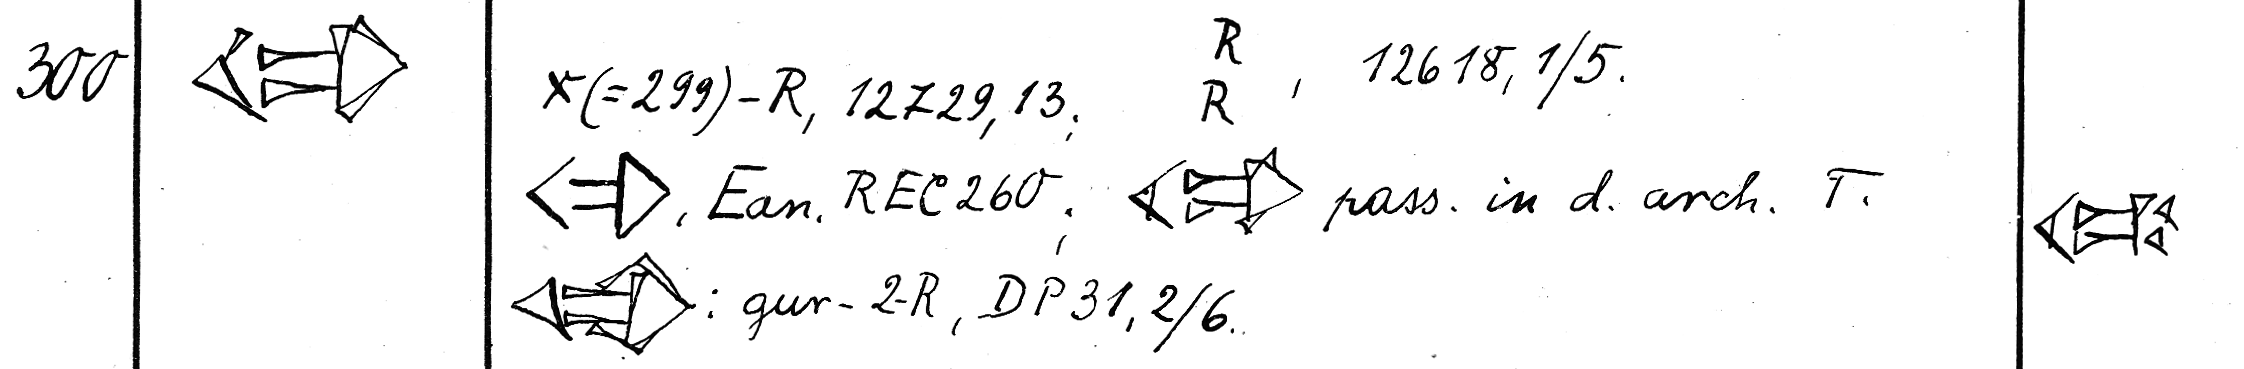 300
x(=299)-R, 12729,13; R , 12618, 1/5.
R
, Ean. REC 260; pass. in d. arch. T.
: gur-2-R, DP 31, 2/6.